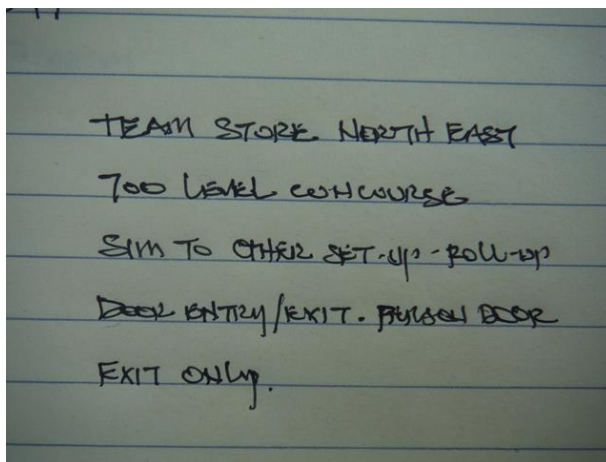 TEAM STORE NORTH EAST
700 LEVEL CONCOURSE
SIM TO OTHER SET-UP - ROLL-UP
DOOR ENTRY/EXIT. PERSON DOOR
EXIT ONLY.